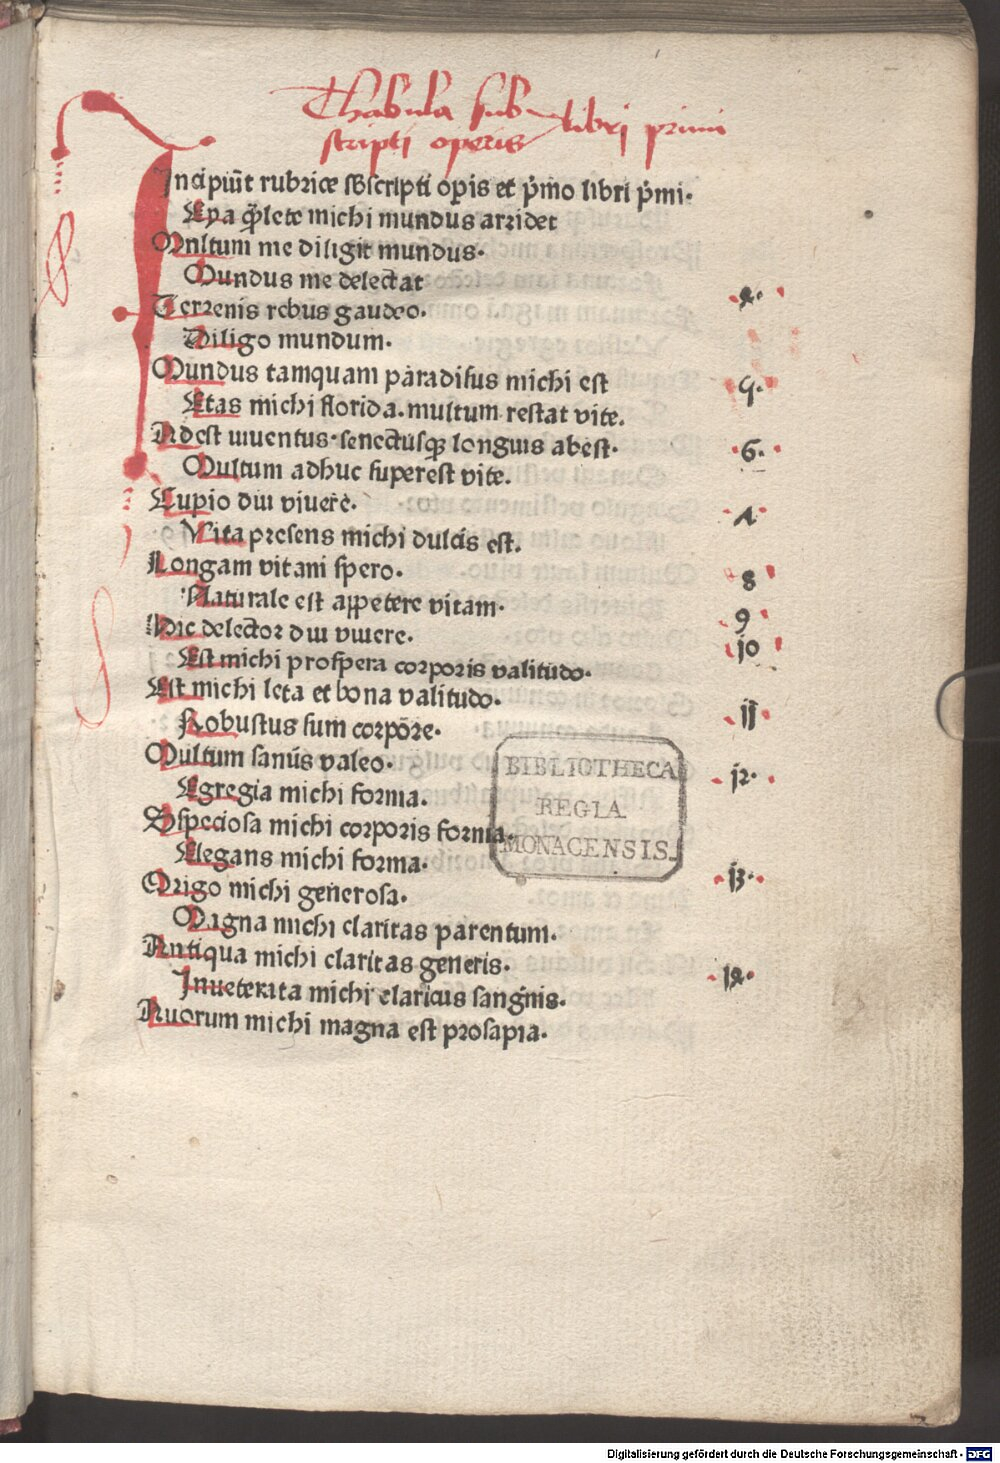 Thabula sub- libri primi
scripti operis
Incipiūt rubrice sb̄scripti op̱is et p̄mo libri p̄mi.
Eya q̄lete michi mundus arridet
Multum me diligit mundus.
Mundus me delectat
4.
Terrenis rebus gaudeo.
Diligo mundum.
Mundus tamquam paradisus michi est
5.
Etas michi florida. multum restat vite.
Adest iuuentus. senectusq̄ longius abest.
6.
Multum adhuc superest vite.
Cupio diu viuere.
7
Vita presens michi dulcis est.
Longam vitam spero.
8
Naturale est appetere vitam.
Hic delector diu viuere.
9
Est michi prospera corporis valitudo.
10
Est michi leta et bona valitudo.
Robustus sum corpore.
11
Multum sanus valeo.
12.
Egregia michi forma.
Speciosa michi corporis forma.
Elegans michi forma.
13.
Origo michi generosa.
Magna michi claritas parentum.
Antiqua michi claritas generis.
14.
Inueterata michi claritas sangnis.
Auorum michi magna est prosapia.
BIBLIOTHECA
REGIA
MONACENSIS.
Digitalisierung gefördert durch die Deutsche Forschungsgemeinschaft - DFG